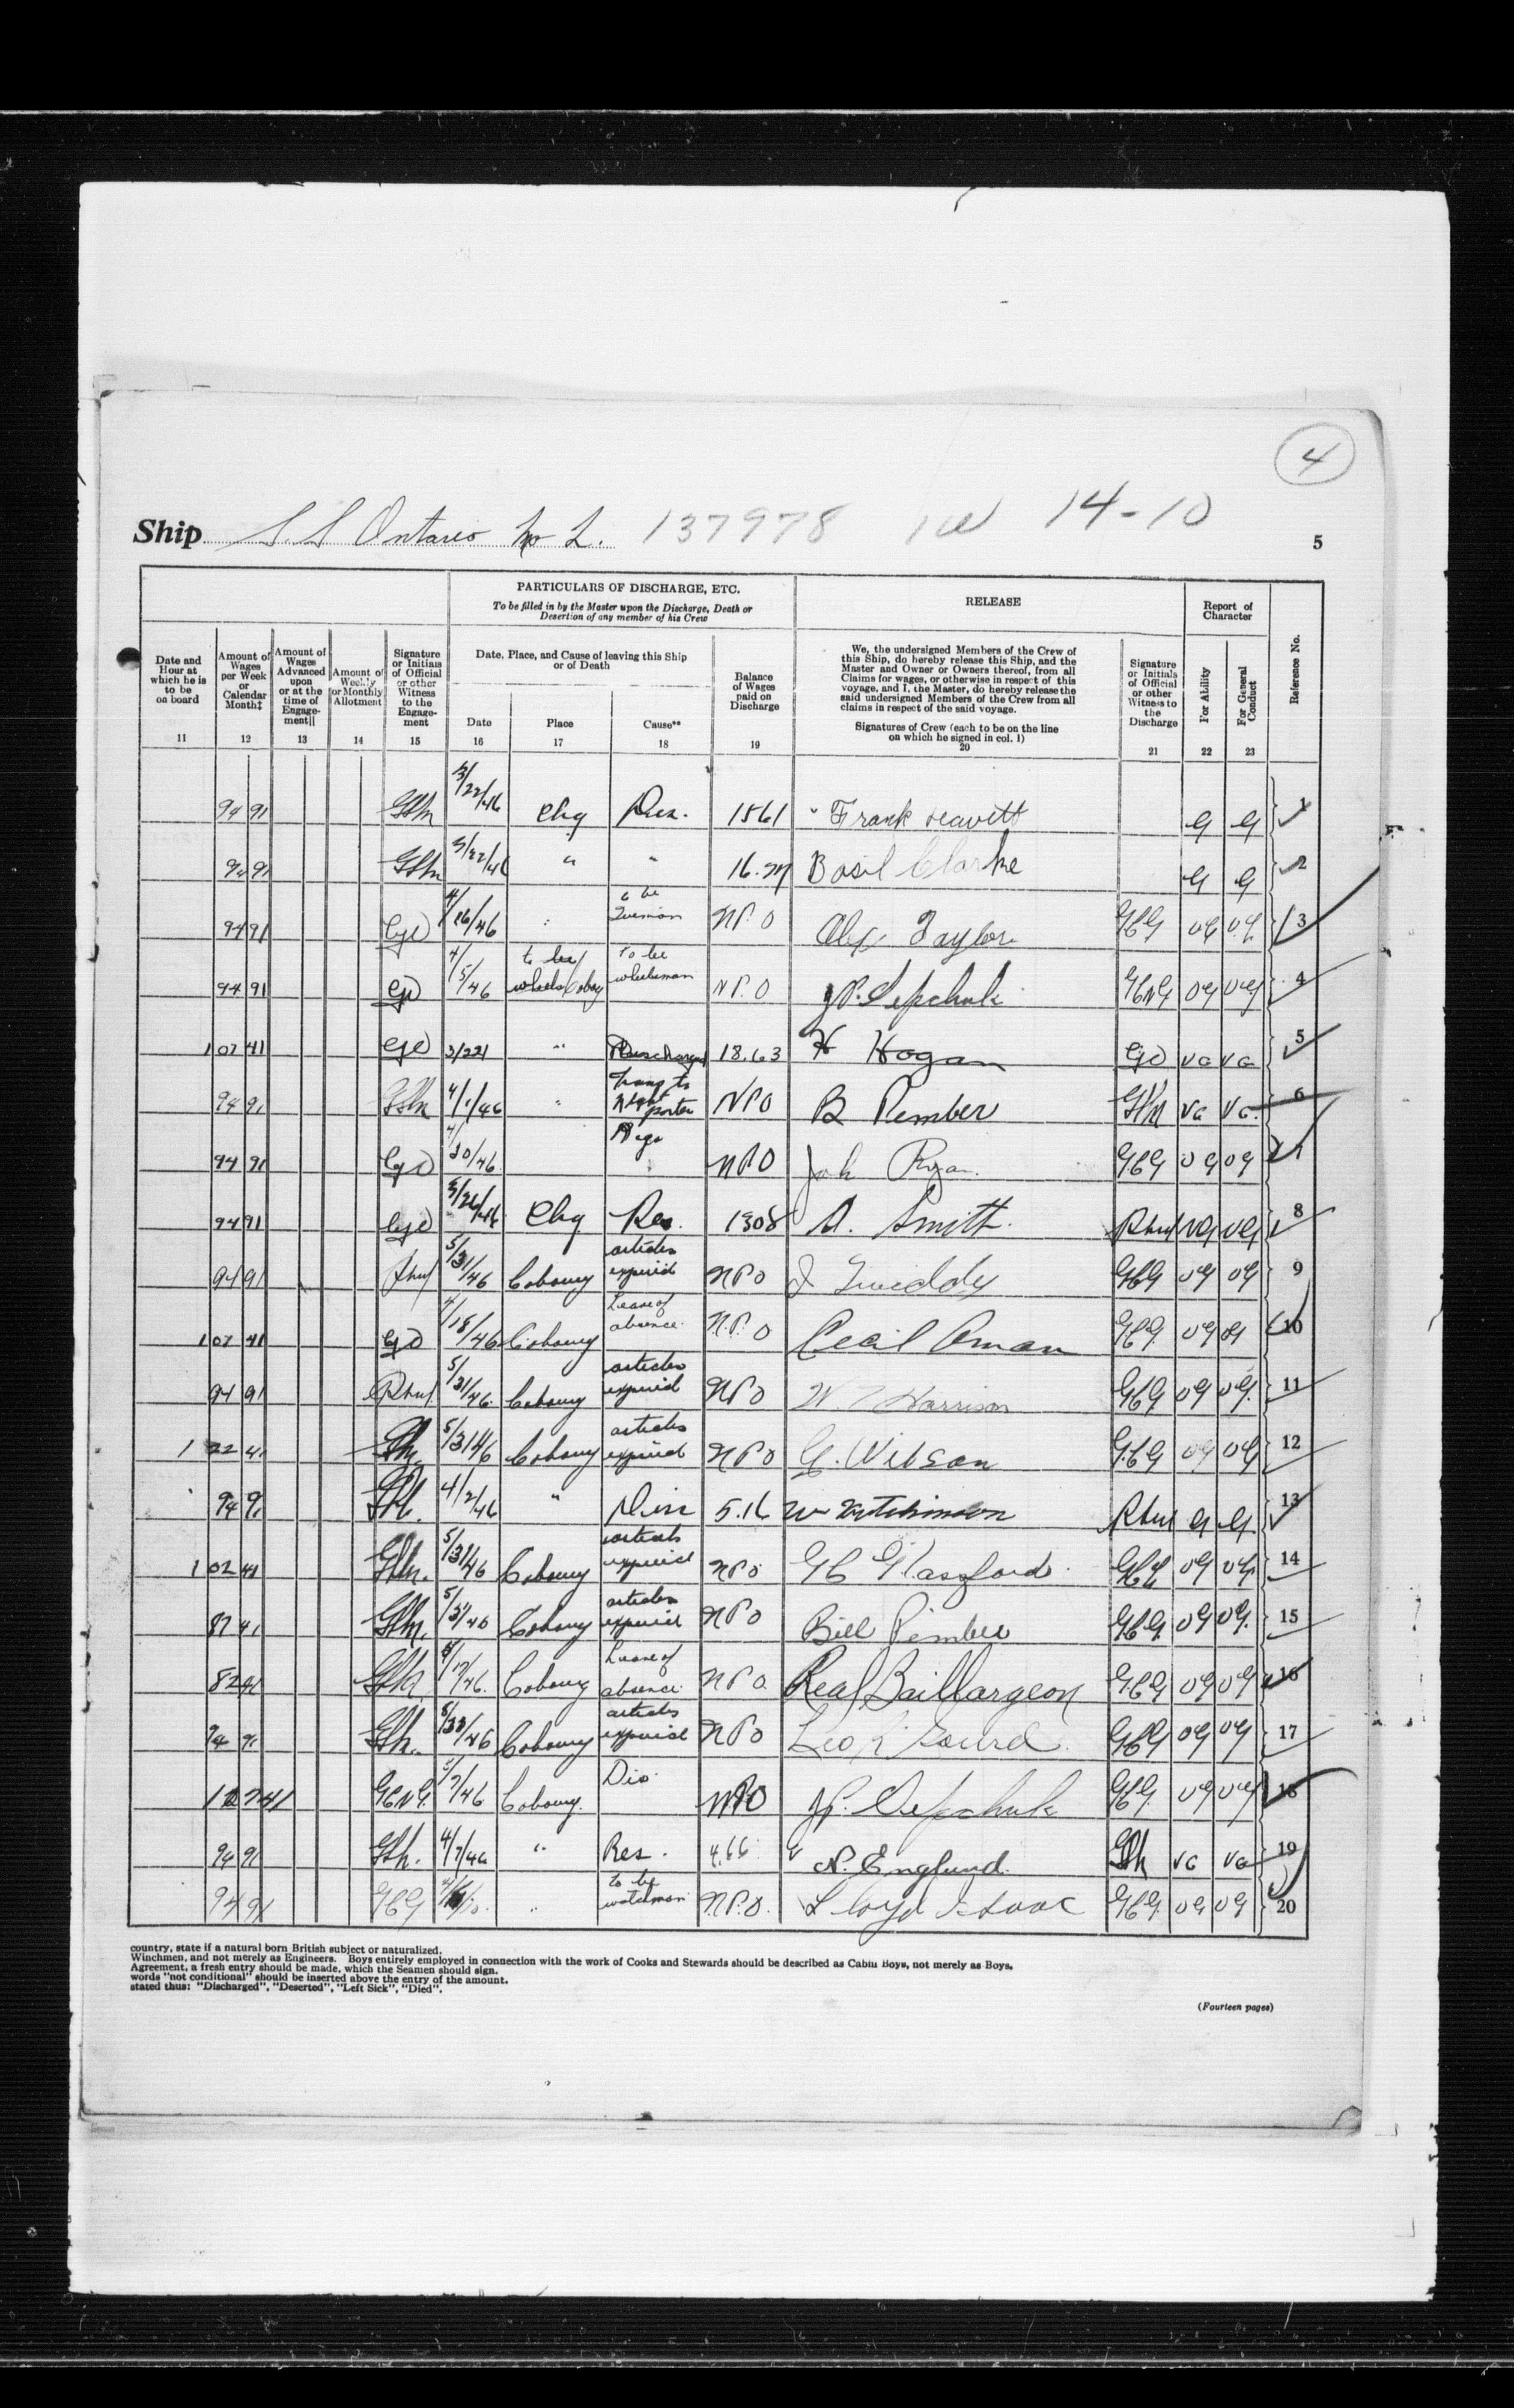 4
Ship S.S Ontario No 2. 137978 14-10
5
PARTICULARS OF DISCHARGE, ETC.
To be filled in by the Master upon the Discharge, Death or
Desertion of any member of his Crew
RELEASE
Report of
Character
Reference No.
Date and
Hour at
which he is
to be
on board
11
Amount of
Wages
per Week
or
Calendar
Month‡
12
Amount of
Wages
Advanced
upon
or at the
time of
Engage-
ment||
13
Amount of
Weekly
or Monthly
Allotment
14
Signature
or Initials
of Official
or other
Witness
to the
Engage-
ment
15
Date, Place, and Cause of leaving this Ship
or of Death
Date
16
Place
17
Cause**
18
Balance
of Wages
paid on
Discharge
19
We, the undersigned Members of the Crew of
this Ship, do hereby release this Ship, and the
Master and Owner or Owners thereof, from all
Claims for wages, or otherwise in respect of this
voyage, and I, the Master, do hereby release the
said undersigned Members of the Crew from all
claims in respect of the said voyage.
Signatures of Crew (each to be on the line
on which he signed in col. 1)
20
Signature
or Initials
of Official
or other
Witness to
the
Discharge
21
For Ability
22
For General
Conduct
23
94 91 3/22/46 Cbg 1561 Frank Leavett G G 1
94 91 " " Basil Clarke G G 2
94 91 /16/46 to be N.P.O Alex Taylor GCG VG V.G. 3
94 91 4/5/46 to be wheels Cobourg To be wheelsman N P.O J.P. Sepchuk GCNG VG VG 4
107 41 " Discharged 18.63 H Hogan VG VG 5
94 91 4/1/46 Trans to Night porter NPO B Pember VG VG. 6
94 91 /30/46 NPO Ryan GCG VG VG 7
94 91 Cbg Res. 1308 A. Smith VG VG 8
94 91 5/31/46 Cobourg articles expired NPO J Tweddy GCG VG VG 9
107 41 /18/46 Cobourg Leave of absence N.P.O Cecil Oman GCG VG 10
94 91 5/31/46 Cobourg articles expired NPO W Harrison GCG VG VG. 11
1 22 41 5/31/46 Cobourg articles expired NPO G. Wilson G.C.G VG VG 12
94 91 4/2/46 " 5.16 W Hutchinson G G. 13
1 02 41 5/31/46 Cobourg articles expired NPO GC Glassford GCG VG VG 14
87 41 5/31/46 Cobourg articles expired NPO Bill Pember GCG VG VG. 15
82 91 /17/46. Cobourg Leave of absence NPO. Real Baillargeon GCG VG VG 16
94 91 Cobourg articles expired NPO GCG VG VG 17
GCNG. /7/46 Cobourg. Dis. NPO J.P. Sepchuk GCG. VG VG 18
94 91 4/7/46 " Res. 4.66 N. England. VG VG 19
94 91 GCG " to be watchman N.P.O. Lloyd Isaac GCG. VG VG 20
country, state if a natural born British subject or naturalized.
Winchmen, and not merely as Engineers. Boys entirely employed in connection with the work of Cooks and Stewards should be described as Cabin Boys, not merely as Boys.
Agreement, a fresh entry should be made, which the Seamen should sign.
words "not conditional" should be inserted above the entry of the amount.
stated thus: "Discharged", "Deserted", "Left Sick", "Died".
(Fourteen pages)